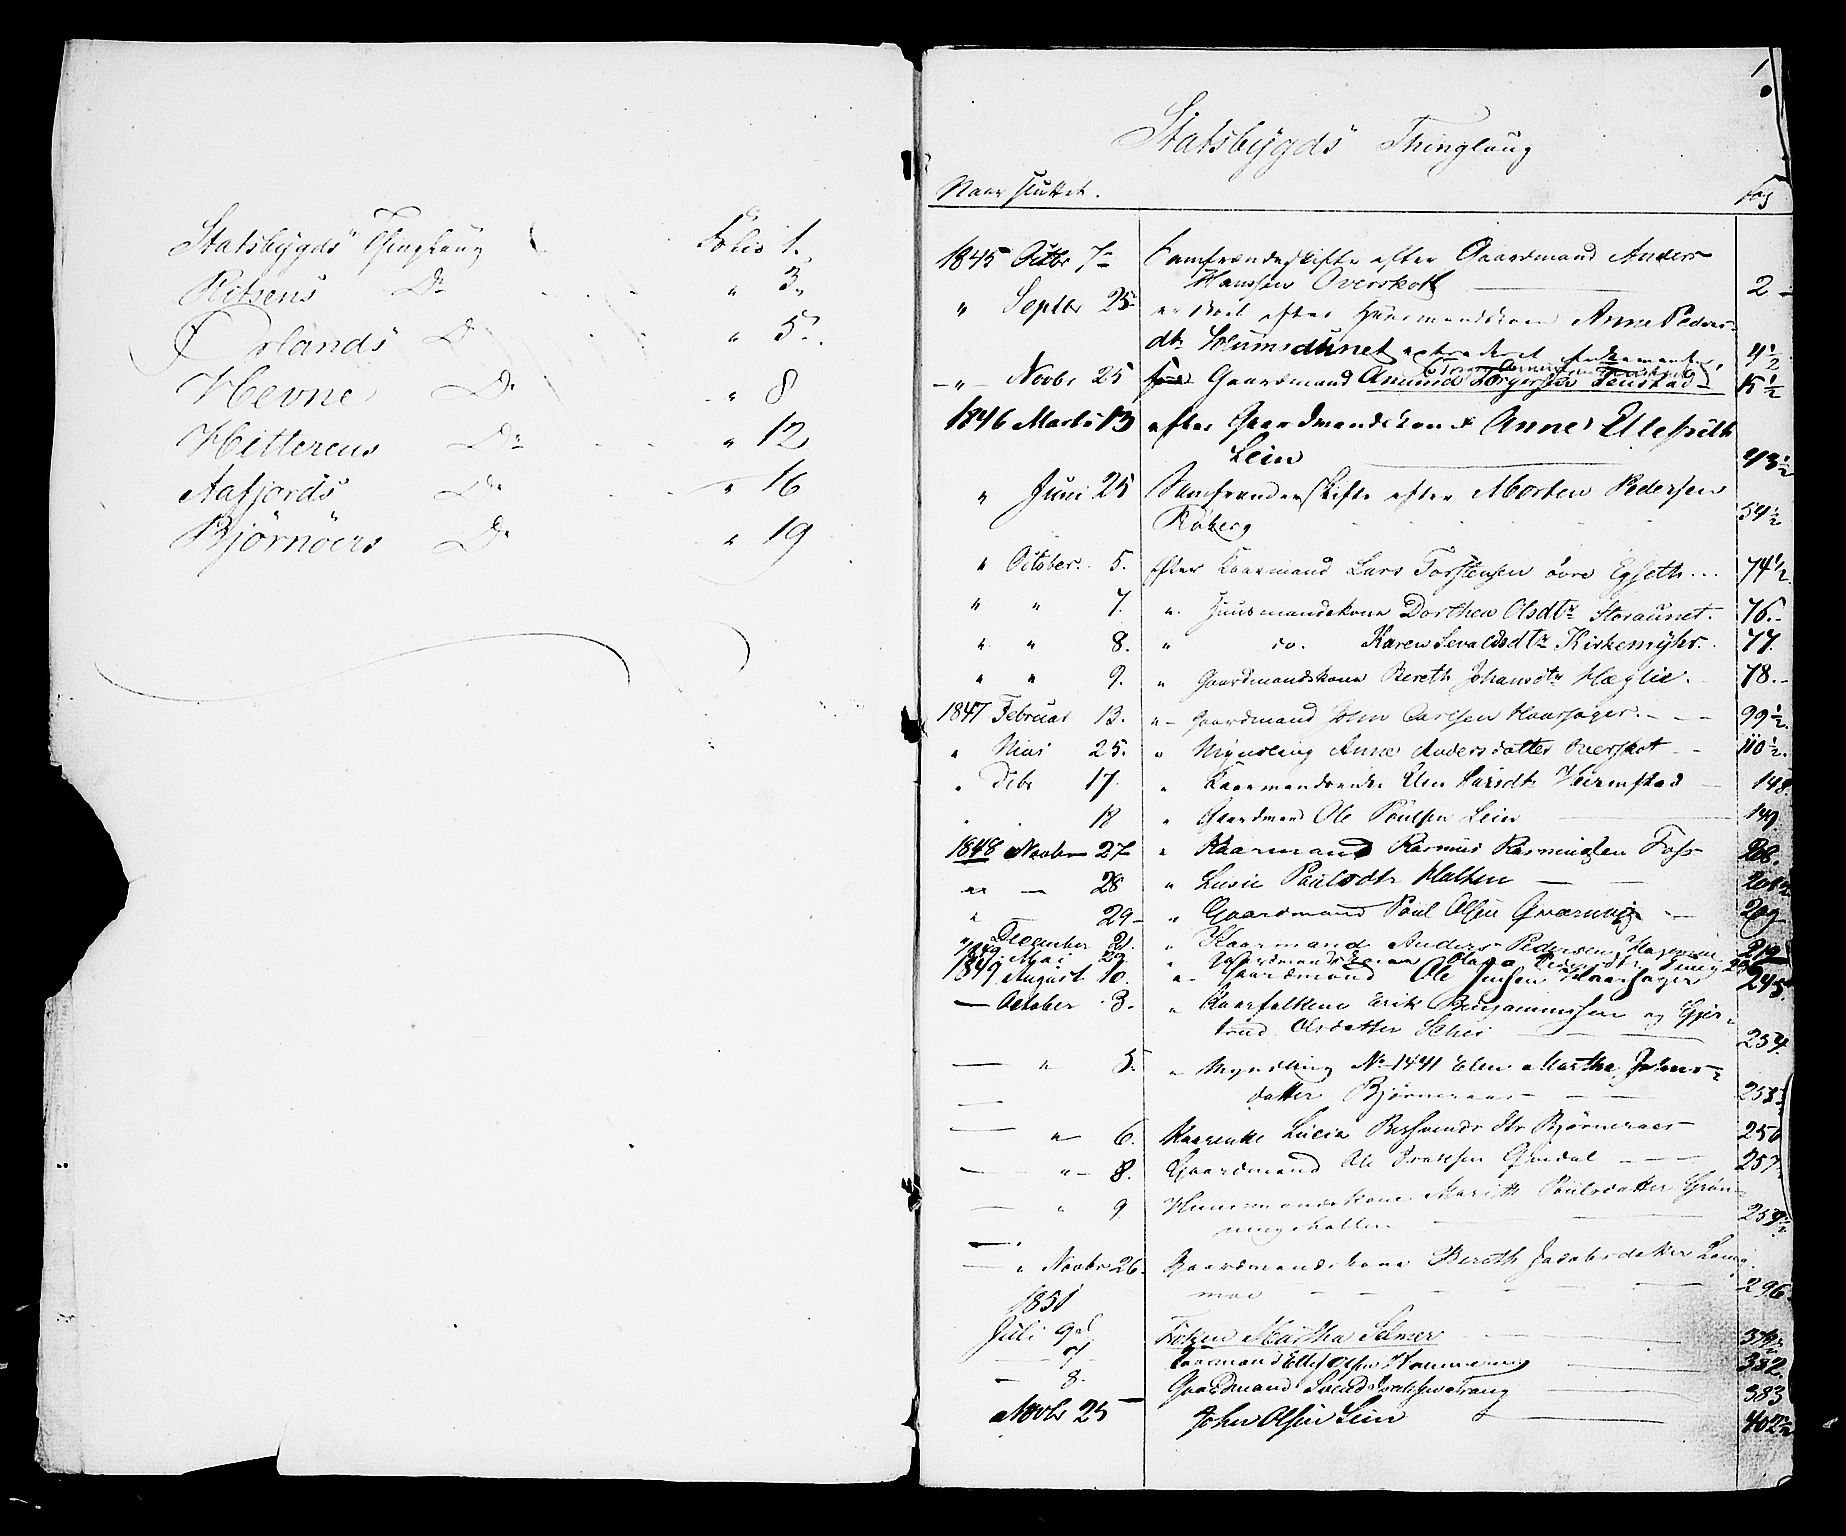 Statsbygds Thinglaug Folio 1.
Ritsens Do " 3.
Ørlands D " 5.
Hevne Do " 8
Hitterens Do " 12
Aafjords Do " 16
Bjørnöers Do " 19
1
Statsbygds Thinglaug
Naar sluttet. Fog
1845 Octbr 7 Samfrændeskifte efter Gaardmand Anders
Hansen Overskott 2
" Septbr 25 efter Huusmandskone Anne Peders-
dtr Humsdunet 4½
" Novbr 25 Gaardmand Amund Torgersen Teustad 15½
1846 Marts 13 efter Gaardmandskone Anne Ellefsdtr
Lein 43½
" Juni 25 Samfrændeskifte efter Morten Pedersen
Röberg 54½
" October 5. efter Kaarmand Lars Torstensen övre Egseth 74½
" " 7. " Huusmandskone Dorthea Olsdtr Storaunet. 76.
" " 8. " do. Karen Sevaldsdtr Kirkemyhr. 77.
" " 9. " Gaardmandskone Bereth Johansdtr Hæglie. 78.
1847 Februar 13. " Gaardmand John Carlsen Haarsager. 99½
" Mai 25. " Myndling Anne Andersdatter Overskot 110½
" Dcbr 17. " Kaarmandsenke Elen Larsdtr Veimstad 148.
18 " Gaardmand Ole Paulsen Lein 149.
1848 Novbr 27 " Kaarmand Rasmus Rasmussen Foss 208.
" — 28 " Lusie Paulsdtr Malten 208½
" 29 " Gaardmand Paul Olsen Qværnvig 209
" December 2. " Kaarmand Anders Pedersen 219
1849 Mai 29 " Gaardmandskone
1849 August 10. " Gaardmand Ole Jensen Haarsager 245.
— October 3. " Kaarfolkene Erik Benjaminsen og Gjer-
trud Olsdatter Schei 254.
— " 5. " Myndling No 1441 Elen Martha Johns-
datter Bjørneraas 255½
— " 6. Kaarenke Lucia Bersvendsdtr Bjørneraas 256
— " 8. Gaardmand Ole Iversen Grøndal 257
— " 9 Huusmandskone Marith Paulsdatter Grön-
ningshallen 259½
— " Novbr 26. Gaardmandskone Bereth Jacobsdatter Lang-
moe 296.
1851
Juli 9 Frøken Martha Selmer
7 Kaarmand Ellef Olsen 382
— 8. Gaardmand 383
Novbr 25 John Olsen Lein 402½